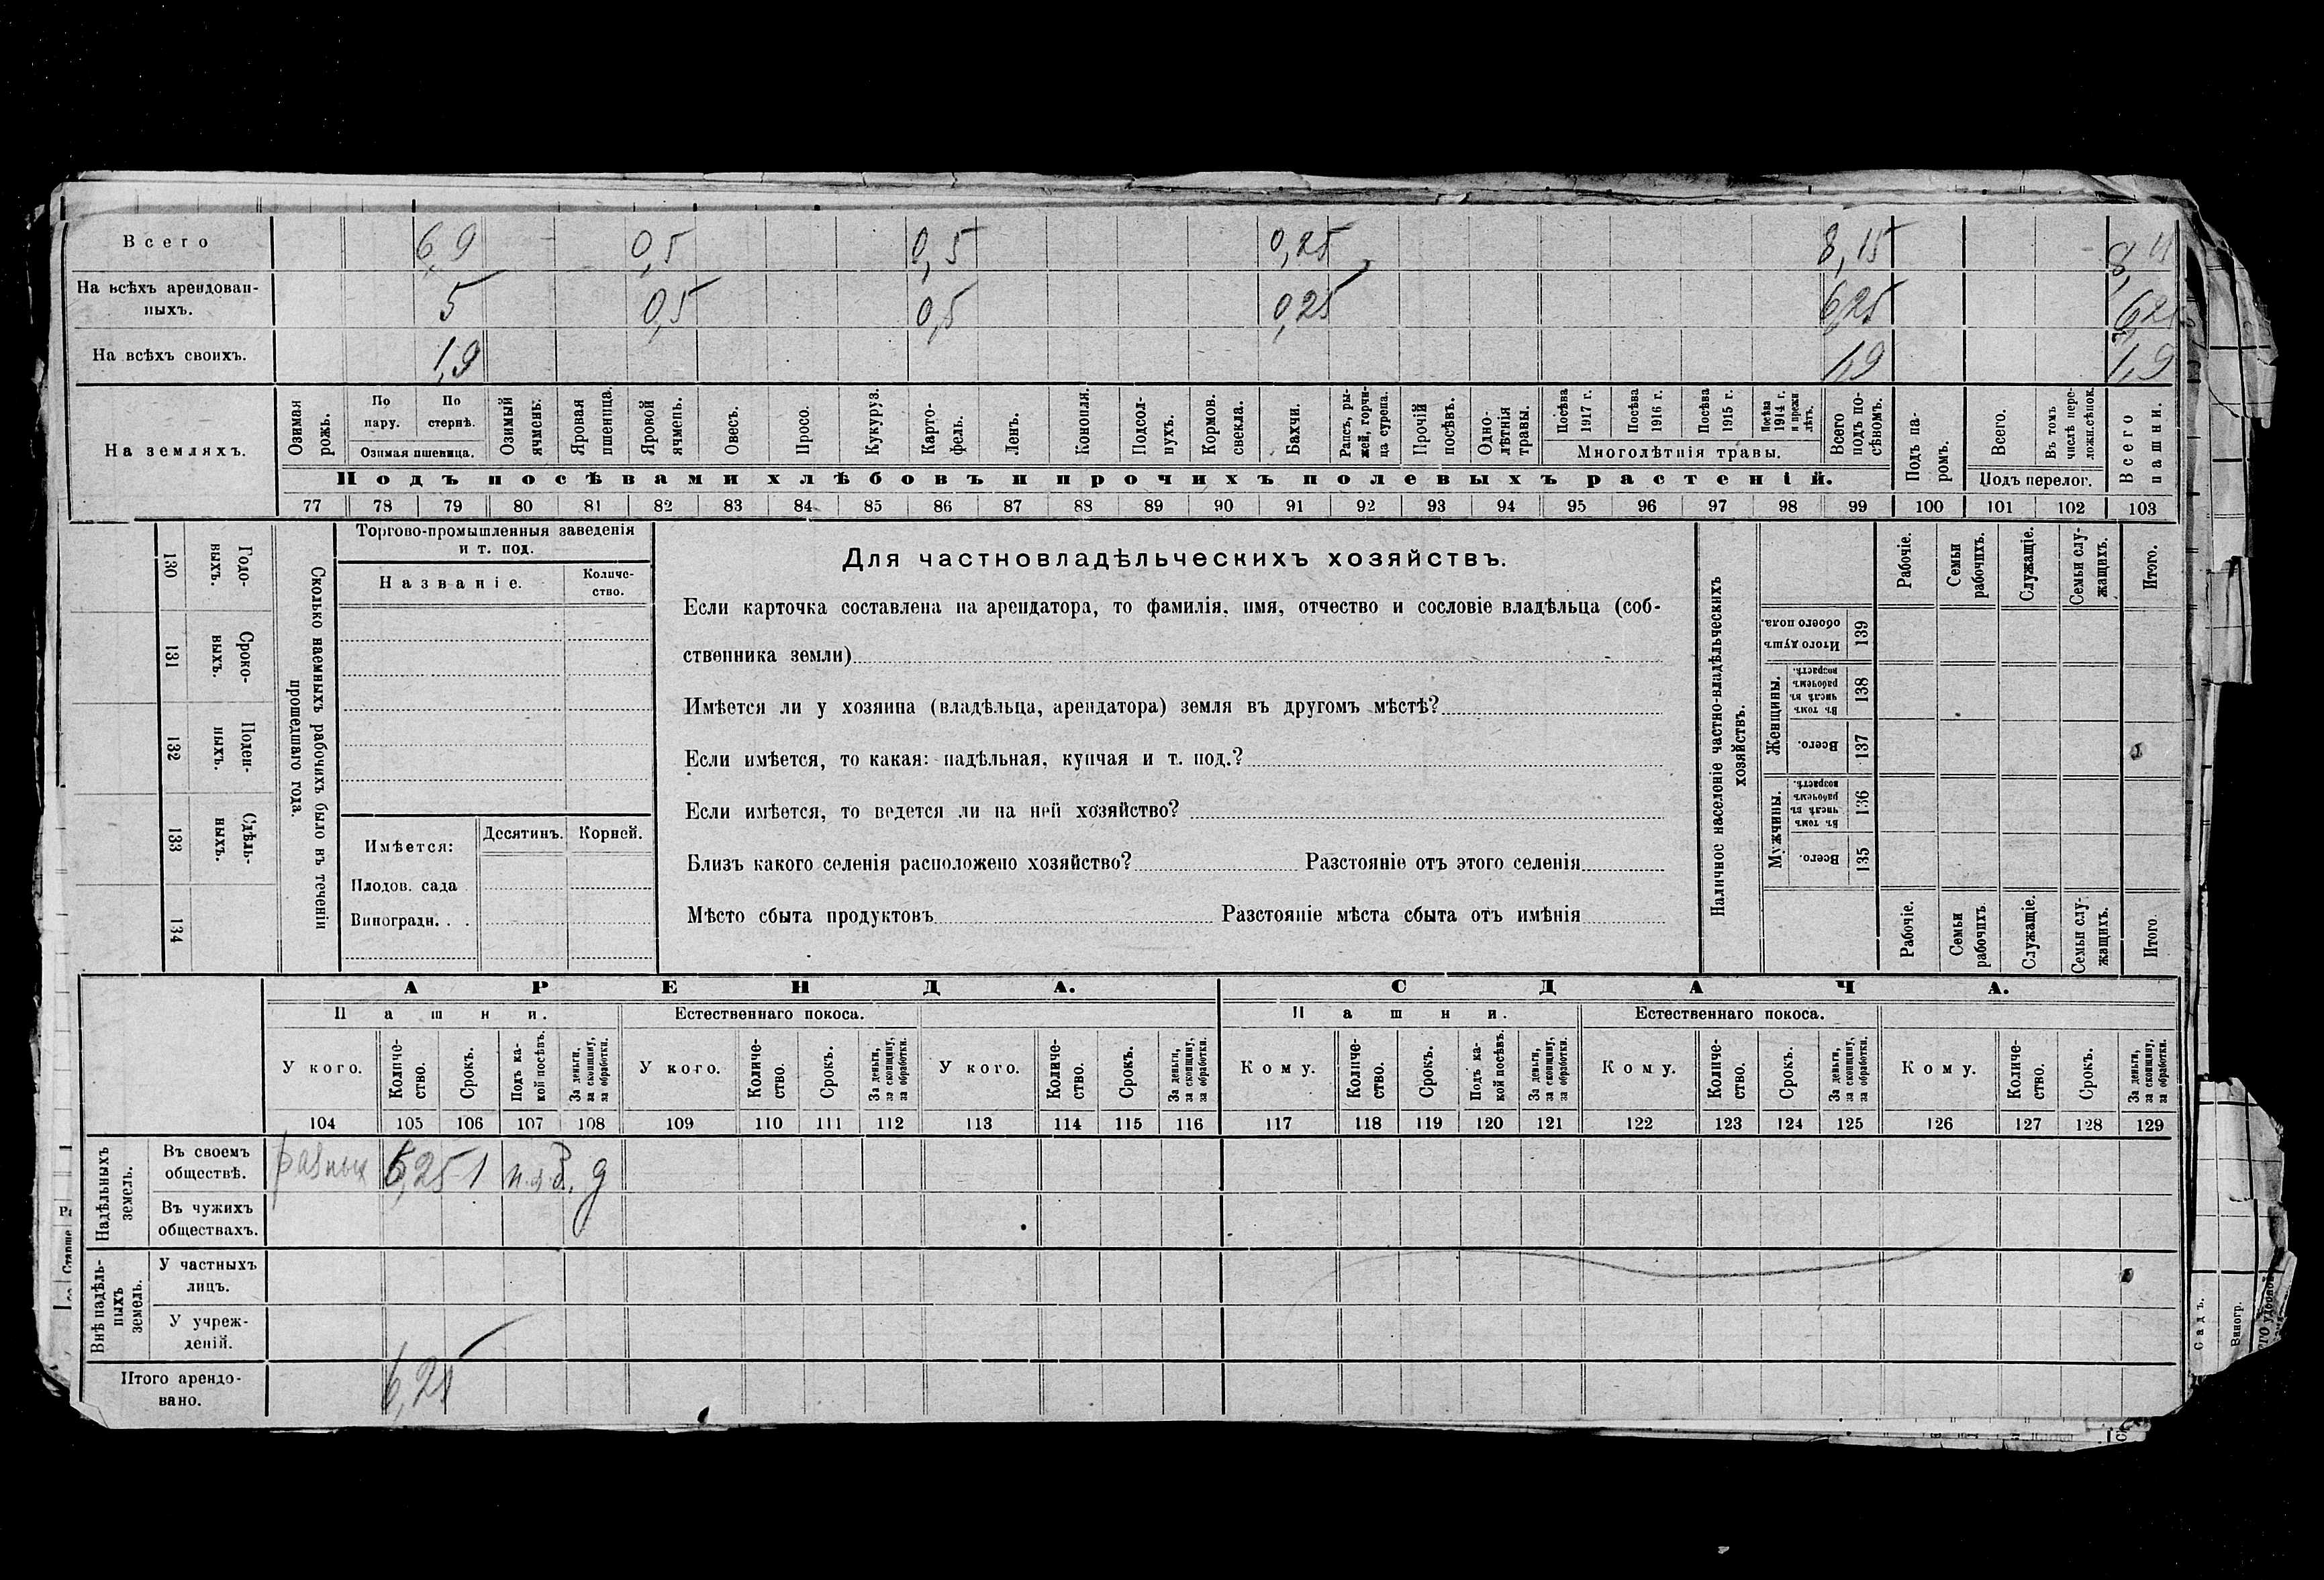 Всего 6,9 0,5 0,5 0,25 8,15
На всѣхъ арендован-
ныхъ. 5 0,5 0,5 0,25 6,25
На всѣхъ своихъ. 1,9 1,9 1,9
На земляхъ.
Озимая рожь.
По пару.
По стернѣ.
Озимая пшеница.
Озимый ячмень.
Яровая пшеница.
Яровой ячмень.
Овесъ.
Просо.
Кукуруз.
Карто-
фель.
Ленъ.
Конопля.
Подсол-
нухъ.
Кормов. свекла.
Бахчи.
Рапсъ, ры-
жей, горчи-
ца сурепа.
Прочій посѣвъ.
Одно-
лѣтнія травы.
Посѣва 1917 г.
Посѣва 1916 г.
Посѣва 1915 г.
Посѣва 1914 г. и прежн лѣтъ.
Многолѣтнія травы.
Всего подъ по-
сѣвомъ.
Подъ па-
ромъ.
Всего.
Въ томъ числѣ пере-
ложн.сѣнок.
Подъ перелог.
Всего пашни.
Подъ посѣвами хлѣбовъ и прочихъ полевыхъ растеній.
77 78 79 80 81 82 83 84 85 86 87 88 89 90 91 92 93 94 95 96 97 98 99 100 101 102 103
130 Годо-
выхъ.
131 Сроко-
выхъ.
132 Поден-
ныхъ.
133 Сдѣль-
ныхъ.
134
Сколько наемныхъ рабочихъ было въ теченіи
прошедшаго года.
Торгово-промышленныя заведенія
и т. под.
Названіе. Количе-
ство.
Имѣется: Десятинъ. Корней.
Плодов. сада
Виноградн. . .
Для частновладѣльческихъ хозяйствъ.
Если карточка составлена на арендатора, то фамилія, имя, отчество и сословіе владѣльца (соб-
ственника земли)
Имѣется ли у хозяина (владѣльца, арендатора) земля въ другомъ мѣстѣ?
Если имѣется, то какая: надѣльная, купчая и т. под.?
Если имѣется, то ведется ли на ней хозяйство?
Близъ какого селенія расположено хозяйство? Разстояніе отъ этого селенія
Мѣсто сбыта продуктовъ Разстояніе мѣста сбыта отъ имѣнія
Наличное населеніе частно-владѣльческихъ
хозяйствъ.
Рабочіе.
Семьи рабочихъ.
Служащіе.
Семьи слу-
жащихъ.
Итого.
Итого душъ обоего пола. 139
Женщины.
Въ томъ числѣ въ рабочемъ возрастѣ. 138
Всего. 137
Мужчины.
Въ томъ числѣ въ рабочемъ возрастѣ. 136
Всего. 135
Рабочіе.
Семьи рабочихъ
Служащіе.
Семьи слу-
жащихъ.
Итого.
АРЕНДА. СДАЧА.
Пашни. Естественнаго покоса. Пашни. Естественнаго покоса.
У кого.
Количе-
ство.
Срокъ.
Подъ ка-
кой посѣвъ.
За деньги, за скопщину, за обработки.
У кого.
Количе-
ство.
Срокъ.
За деньги, за скопщину, за обработки.
У кого.
Количе-
ство.
Срокъ.
За деньги, за скопщину, за обработки.
Кому.
Количе-
ство.
Срокъ.
Подъ ка-
кой посѣвъ.
За деньги, за скопщину, за обработки.
Кому.
Количе-
ство.
Срокъ.
За деньги, за скопщину, за обработки.
Кому.
Количе-
ство.
Срокъ.
За деньги, за скопщину, за обработки.
104 105 106 107 108 109 110 111 112 113 114 115 116 117 118 119 120 121 122 123 124 125 126 127 128 129
Надѣльныхъ
земель.
Въ своемъ
обществѣ. разных 6,25 1
Въ чужихъ
обществахъ.
Внѣ надѣль-
ныхъ
земель.
У частныхъ
лицъ.
У учреж-
деній.
Итого арендо-
вано. 6,25
Садъ.
Виногр.